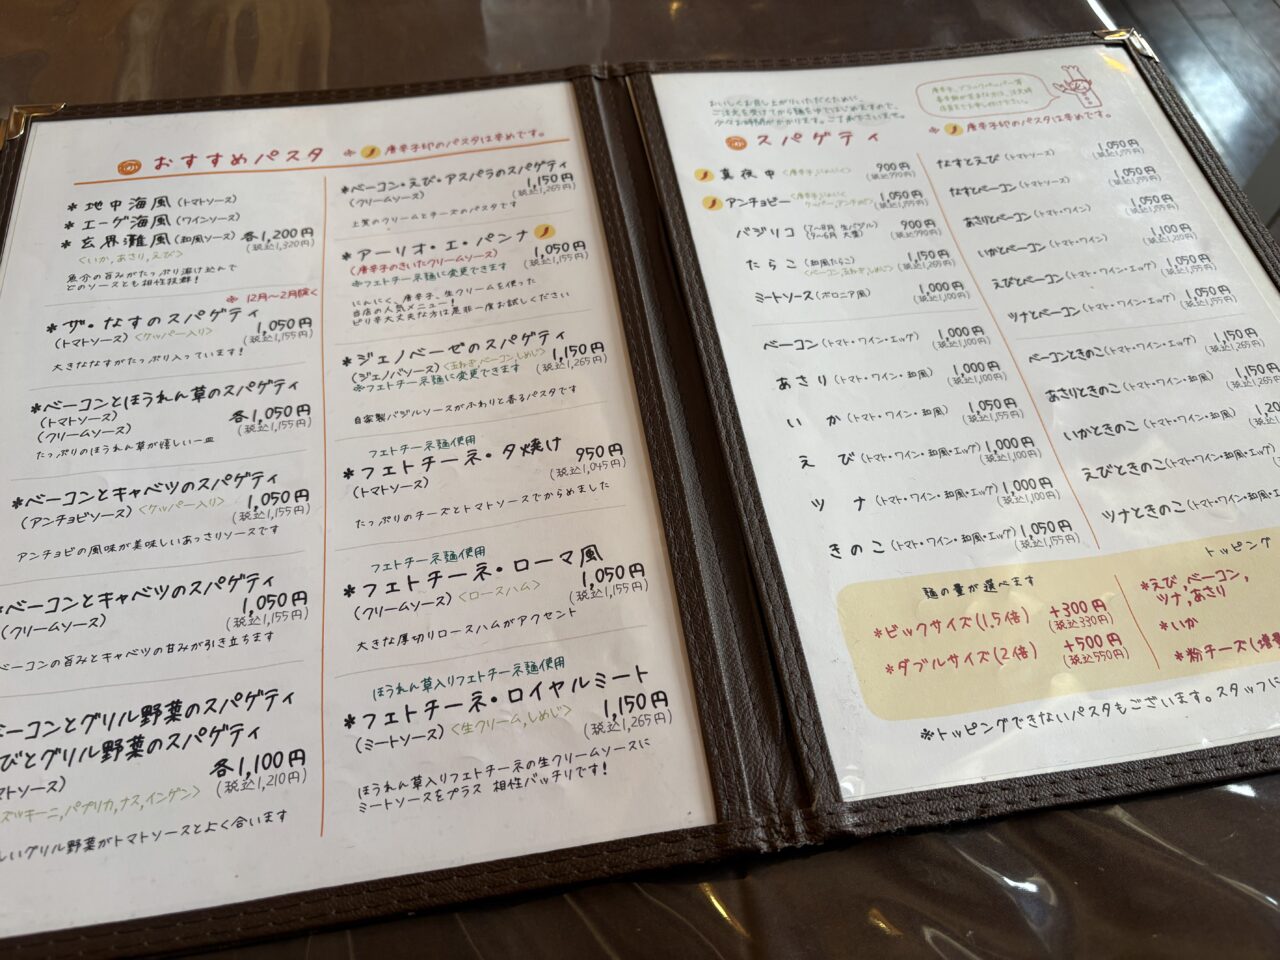 おすすめパスタ
※ 唐辛子印のパスタは辛めです。
* 地中海風 (トマトソース)
* エーゲ海風 (ワインソース)
* 玄界灘風 (和風ソース) 各1,200円
(税込1,320円)
<いか,あさり,えび>
魚介の旨みがたっぷり溶け込んで
どのソースとも相性抜群!
※ 12月〜2月除く
*ザ・なすのスパゲティ
(トマトソース) <ケッパー入り> 1,050円
(税込1,155円)
大きななすがたっぷり入っています!
*ベーコンとほうれん草のスパゲティ
(トマトソース)
(クリームソース) 各1,050円
(税込1,155円)
たっぷりのほうれん草が嬉しい一皿
*ベーコンとキャベツのスパゲティ
(アンチョビソース) <ケッパー入り> 1,050円
(税込1,155円)
アンチョビの風味が美味しいあっさりソースです
ベーコンとキャベツのスパゲティ
(クリームソース) 1,050円
(税込1,155円)
ベーコンの旨みとキャベツの甘みが引き立ちます
ベーコンとグリル野菜のスパゲティ
びとグリル野菜のスパゲティ
マトソース) 各1,100円
(税込1,210円)
ズッキーニ,パプリカ,ナス,インゲン>
しいグリル野菜がトマトソースとよく合います
*ベーコン・えび・アスパラのスパゲティ
(クリームソース) 1,150円
(税込1,265円)
上質のクリームとチーズのパスタです
*アーリオ・エ・パンナ
(唐辛子のきいたクリームソース) 1,050円
(税込1,155円)
※フェトチーネ麺に変更できます
にんにく、唐辛子、生クリームを使った
当店の人気メニュー!
ピリ辛大丈夫な方は是非一度お試しください
*ジェノベーゼのスパゲティ
(ジェノバソース) <玉ねぎ,ベーコン,しめじ> 1,150円
(税込1,265円)
※フェトチーネ麺に変更できます
自家製バジルソースがふわりと香るパスタです
フェトチーネ麺使用
*フェトチーネ・夕焼け
(トマトソース) 950円
(税込1,045円)
たっぷりのチーズとトマトソースでからめました
フェトチーネ麺使用
*フェトチーネ・ローマ風
(クリームソース) <ロースハム> 1,050円
(税込1,155円)
大きな厚切りロースハムがアクセント
ほうれん草入りフェトチーネ麺使用
*フェトチーネ・ロイヤルミート
(ミートソース) <生クリーム,しめじ> 1,150円
(税込1,265円)
ほうれん草入りフェトチーネの生クリームソースに
ミートソースをプラス 相性バッチリです!
おいしくお召し上がりいただくために、
ご注文を受けてから麺をゆではじめますので、
少々お時間がかかります。ご了承下さいませ。
スパゲティ
※ 唐辛子印のパスタは辛めです。
真夜中 <唐辛子,にんにく> 900円
(税込990円)
アンチョビー 1,050円
(税込1,155円)
バジリコ (7〜8月 生バジル) 900円
(9〜6月 大葉) (税込990円)
たらこ (和風たらこ) 1,150円
<ベーコン,玉ねぎ,しめじ> (税込1,265円)
ミートソース (ボロニア風) 1,000円
(税込1,100円)
ベーコン (トマト・ワイン・エッグ) 1,000円
(税込1,100円)
あさり (トマト・ワイン・和風) 1,000円
(税込1,100円)
いか (トマト・ワイン・和風) 1,050円
(税込1,155円)
えび (トマト・ワイン・和風・エッグ) 1,000円
(税込1,100円)
ツナ (トマト・ワイン・和風・エッグ) 1,000円
(税込1,100円)
きのこ (トマト・ワイン・和風・エッグ) 1,050円
(税込1,155円)
なすとえび (トマトソース) 1,050円
(税込1,155円)
なすとベーコン (トマトソース) 1,050円
(税込1,155円)
あさりとベーコン (トマト・ワイン) 1,050円
(税込1,155円)
いかとベーコン (トマト・ワイン) 1,100円
(税込1,210円)
えびとベーコン (トマト・ワイン・エッグ) 1,050円
(税込1,155円)
ツナとベーコン (トマト・ワイン・エッグ) 1,050円
(税込1,155円)
ベーコンときのこ (トマト・ワイン・エッグ) 1,150円
(税込1,265円)
あさりときのこ (トマト・ワイン・和風) 1,150円
(税込1,265円)
いかときのこ (トマト・ワイン・和風) 1,20
えびときのこ (トマト・ワイン・和風・エッグ)
ツナときのこ (トマト・ワイン・和風・エ
麺の量が選べます
*ビッグサイズ (1.5倍) +300円
(税込330円)
*ダブルサイズ (2倍) +500円
(税込550円)
トッピング
*えび,ベーコン,
ツナ,あさり
*いか
*粉チーズ (増量
※トッピングできないパスタもございます。スタッフに